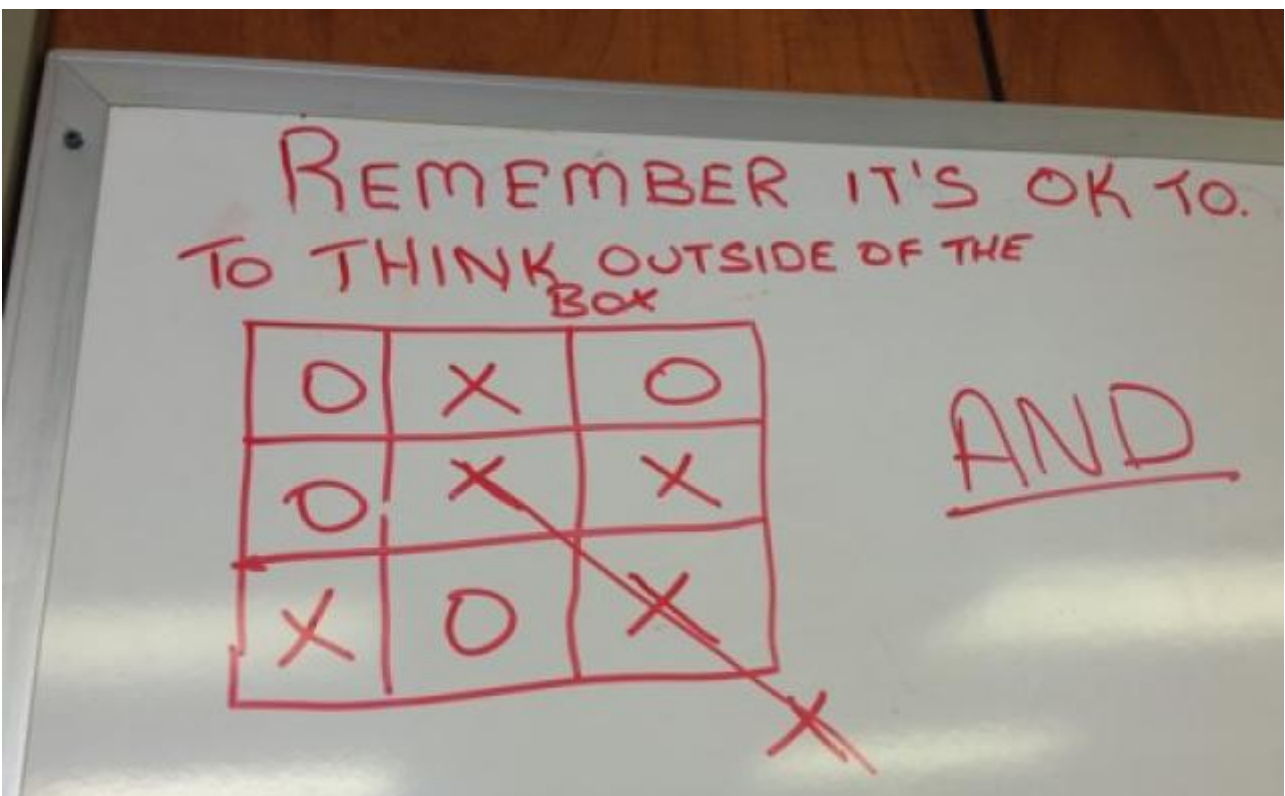 REMEMBER IT'S OK TO.
TO THINK OUTSIDE OF THE
BOX
O X O
O X X
X O X
X
AND